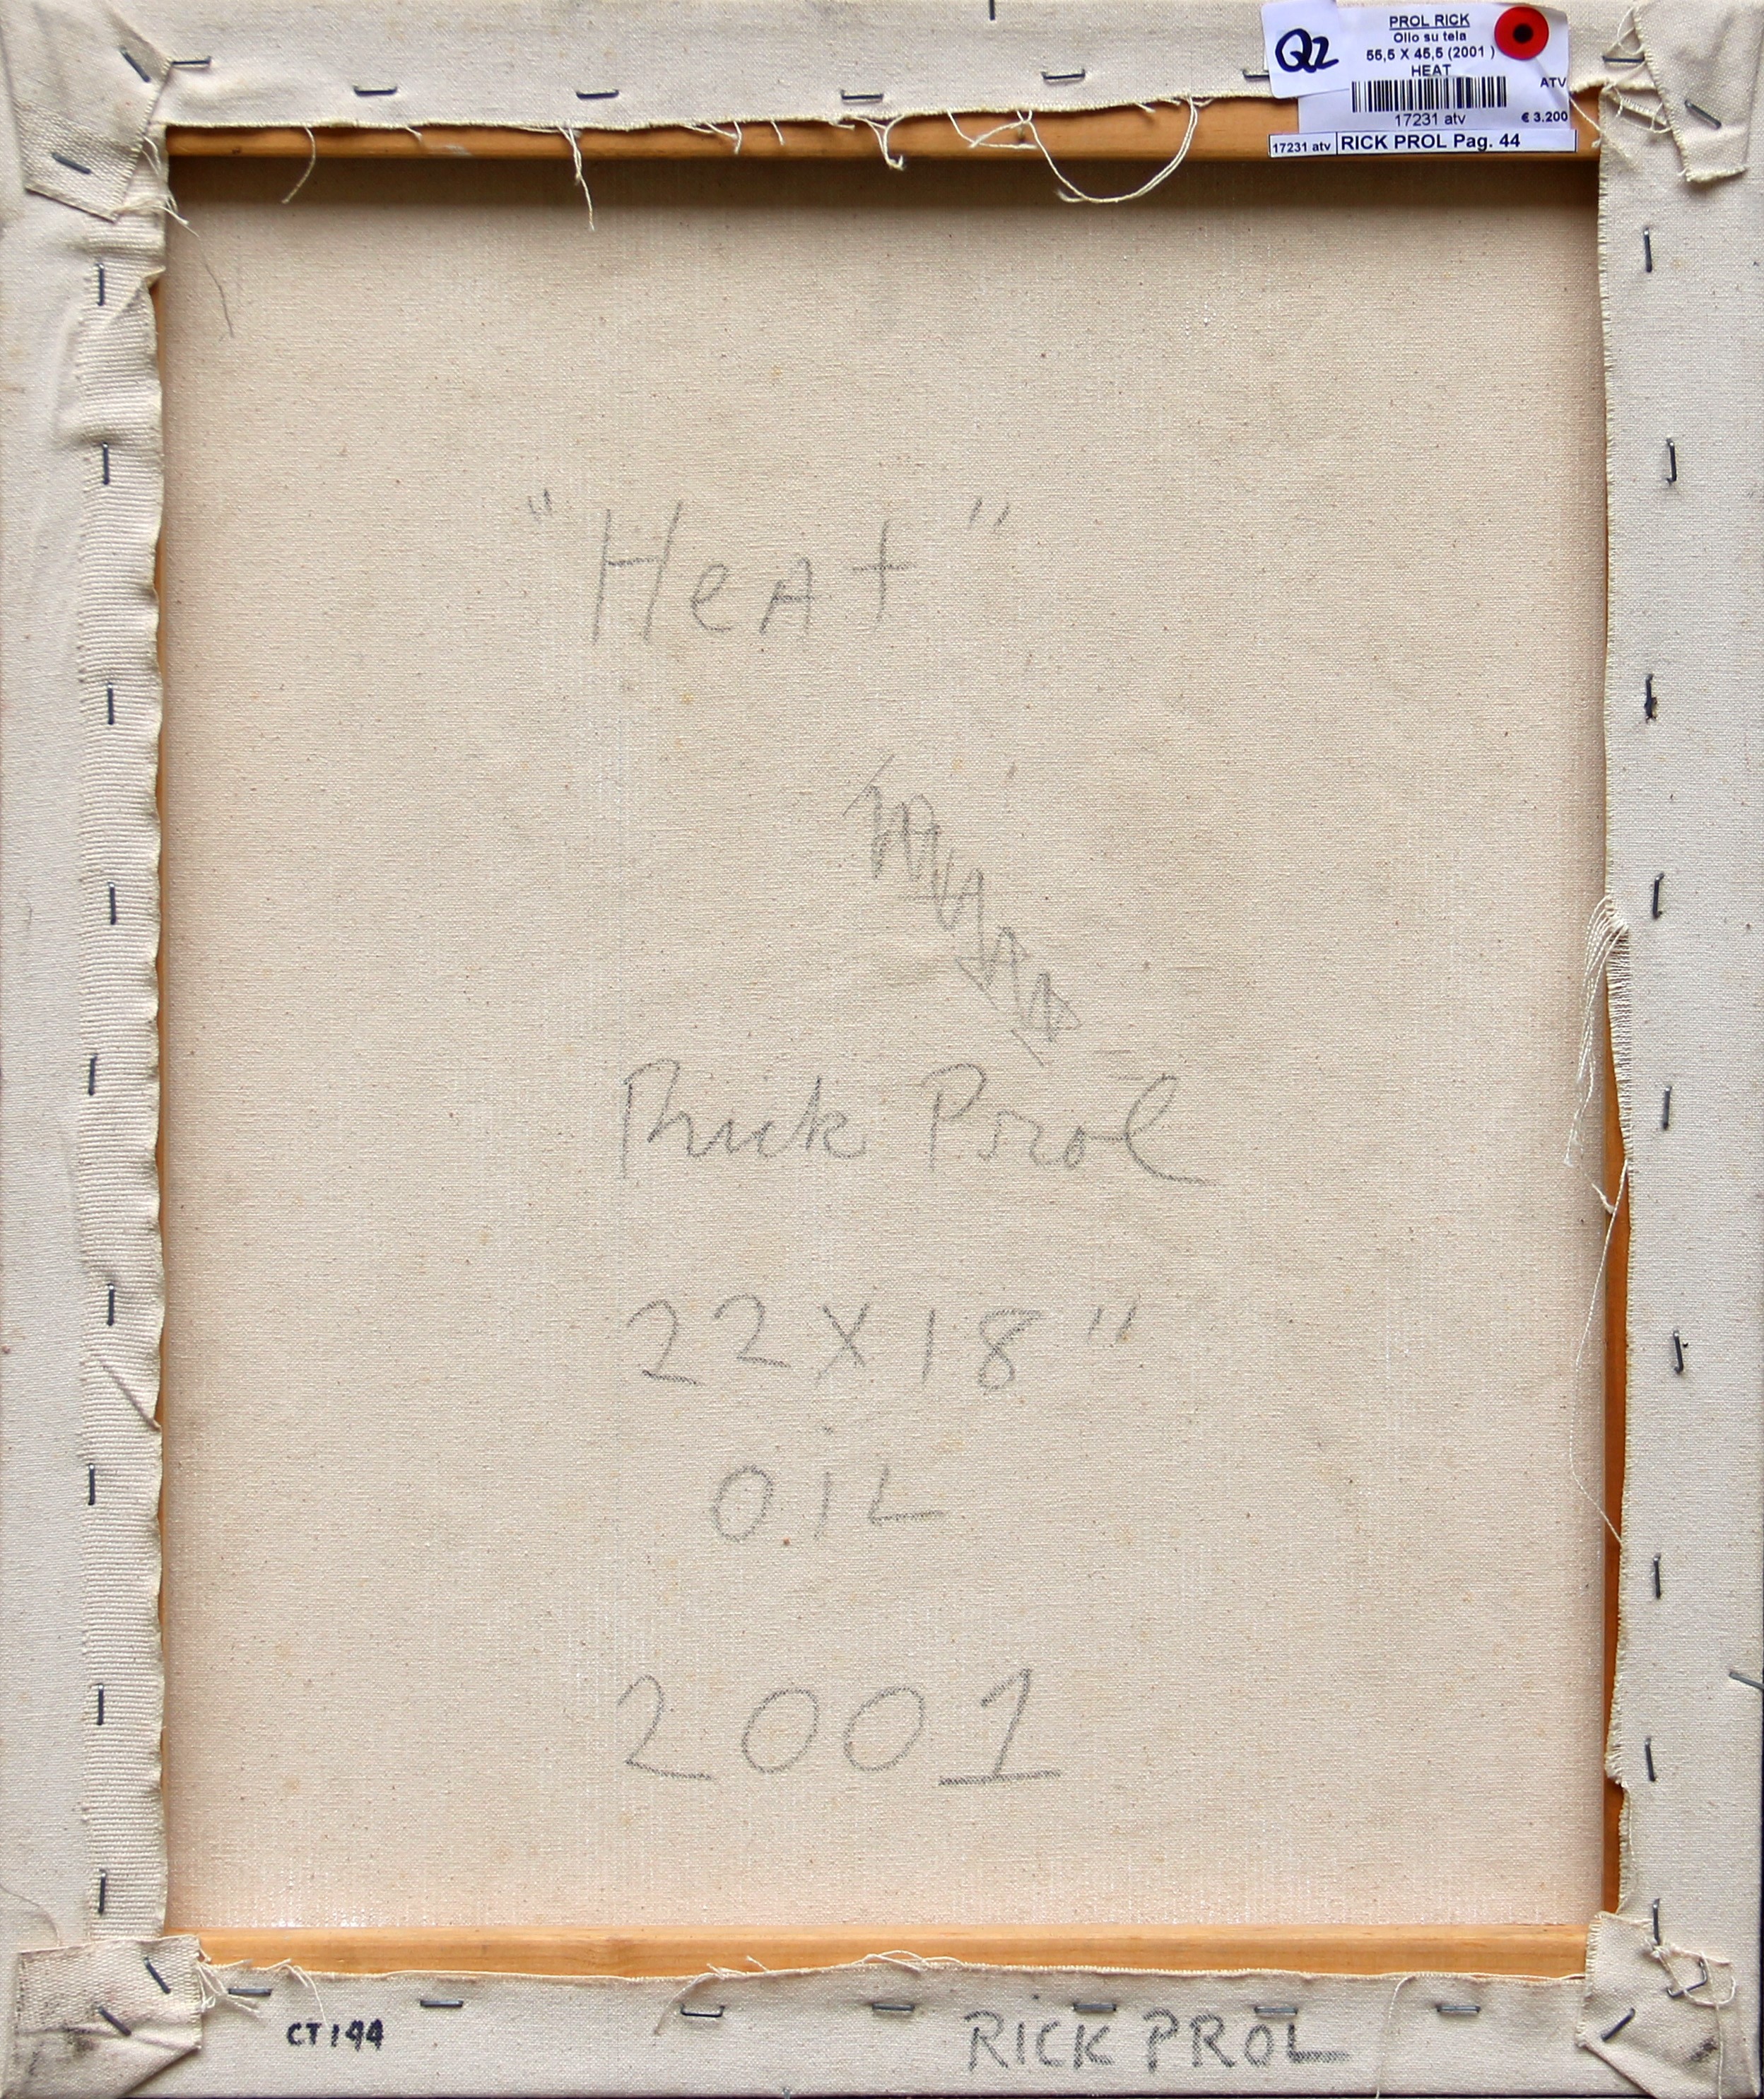 Q2
PROL RICK
Olio su tela
55,5 X 45,5 (2001 )
HEAT
ATV
17231 atv
€ 3.200
17231 atv RICK PROL Pag. 44
"HeAt"
Rick Prol
22 X 18"
OiL
2001
CT144
RICK PROL